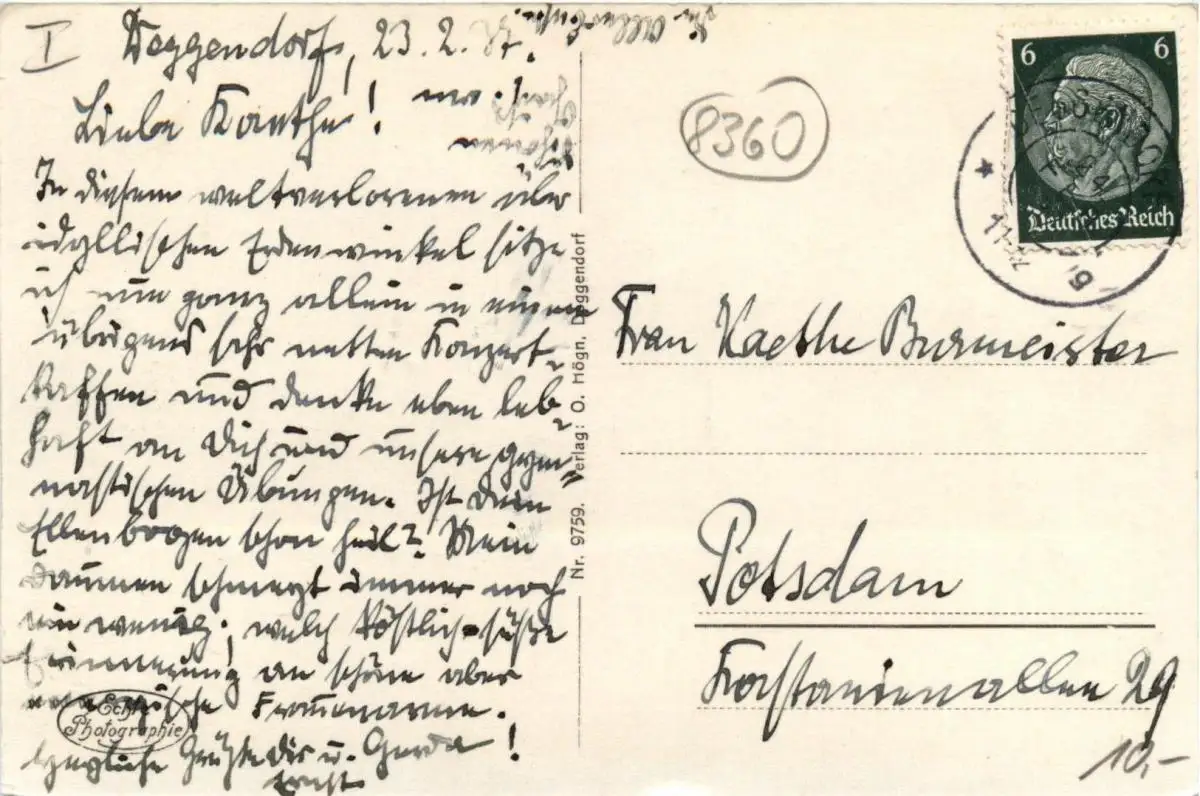 I Deggendorf, 23. 2. 37.
Liebe Kaethe!
In diesem weltverlorenen aber
idyllischen Erdenwinkel sitze
ich nun ganz allein in einem
übrigens sehr netten Konzert-
kaffee und denke eben leb-
haft an Dich und unsere gym-
nastischen Übungen. Ist Dein
Ellenbogen schon heil? Mein
Daumen schmerzt immer noch
ein wenig; welch köstlich-süße
Erinnerung an schöne aber
Frauenarme.
Herzliche Grüße Dir u. Gerda!
Echte
Photographie
Nr. 9759. Verlag: O. Högn, Deggendorf
8360
6 6
Deutsches Reich
Frau Kaethe Burmeister
Potsdam
Kastanienallee 29
10,-